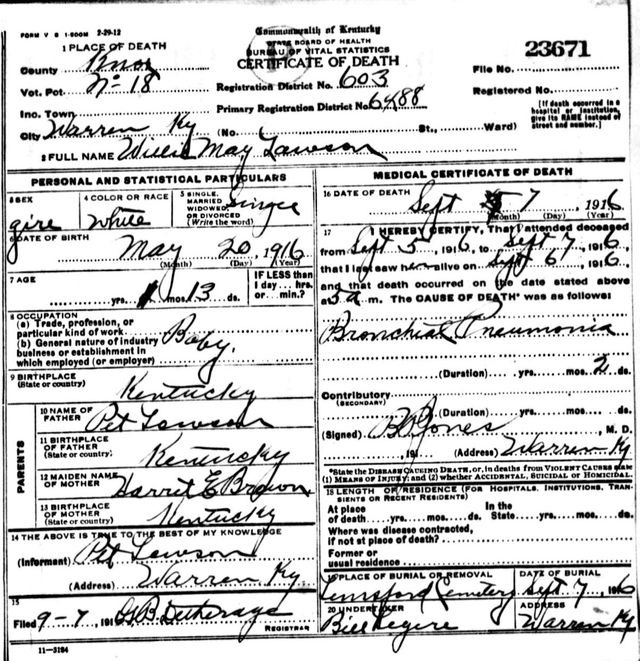 FORM V S 1-500M 2-29-12
Commonwealth of Kentucky
STATE BOARD OF HEALTH
BUREAU OF VITAL STATISTICS
CERTIFICATE OF DEATH
23671
1 PLACE OF DEATH
County Knox
Vot. Pct. No 18
Inc. Town
City Warren Ky (No. St., Ward)
Registration District No. 603
Primary Registration District No. 6488
File No.
Registered No.
[If death occurred in a hospital or institution, give its NAME instead of street and number.]
2 FULL NAME Willie May Lawson
PERSONAL AND STATISTICAL PARTICULARS
3 SEX girl
4 COLOR OR RACE White
5 SINGLE, MARRIED WIDOWED OR DIVORCED (Write the word) Single
6 DATE OF BIRTH May 20, 1916
(Month) (Day) (Year)
7 AGE yrs. mos. 13 ds.
IF LESS than 1 day... hrs. or... min.?
8 OCCUPATION
(a) Trade, profession, or particular kind of work.
(b) General nature of industry business or establishment in which employed (or employer)
Baby.
9 BIRTHPLACE (State or country) Kentucky
PARENTS
10 NAME OF FATHER Pet Lawson
11 BIRTHPLACE OF FATHER (State or country) Kentucky
12 MAIDEN NAME OF MOTHER Harrit E Brown
13 BIRTHPLACE OF MOTHER (State or country) Kentucky
14 THE ABOVE IS TRUE TO THE BEST OF MY KNOWLEDGE
(Informant) Pet Lawson
(Address) Warren Ky.
15
Filed 9-7, 191
REGISTRAR
11-3184
MEDICAL CERTIFICATE OF DEATH
16 DATE OF DEATH Sept 7, 1916
(Month) (Day) (Year)
17 I HEREBY CERTIFY, That I attended deceased
from Sept 5, 1916, to Sept 7, 1916,
that I last saw her alive on Sept 6, 1916,
and that death occurred on the date stated above
at 3 a m. The CAUSE OF DEATH* was as follows:
Bronchial Pneumonia
(Duration) yrs. mos. 2 ds.
Contributory (SECONDARY)
(Duration) yrs. mos. ds.
(Signed) Jones, M. D.
, 191 (Address) Warren Ky
*State the DISEASE CAUSING DEATH, or, in deaths from VIOLENT CAUSES state (1) MEANS OF INJURY; and (2) whether ACCIDENTAL, SUICIDAL or HOMICIDAL.
18 LENGTH OF RESIDENCE (FOR HOSPITALS, INSTITUTIONS, TRANSIENTS OR RECENT RESIDENTS)
At place of death yrs. mos. ds. In the State yrs. mos. ds.
Where was disease contracted, if not at place of death?
Former or usual residence
19 PLACE OF BURIAL OR REMOVAL Cemetery
DATE OF BURIAL Sept 7, 1916
20 UNDERTAKER Bill
ADDRESS Warren Ky